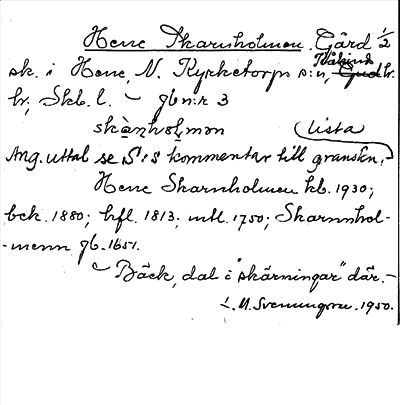 Hene Skarnholmen. Gård 1/2
sk. i Hene, N. Kyrketorps s:n, Kåkinds hr.
hr, Skb. l. – gb n:r 3
skànholmən (lista
Ang. uttal se S:s kommentar till granskn.
Hene Skarnholmen kb. 1930;
bek. 1880; hfl. 1813; mtl. 1750; Skarnnhol-
-menn jb. 1651.
– Bäck, dal i "skärningar" där. –
L. M. Svenungsson. 1950.